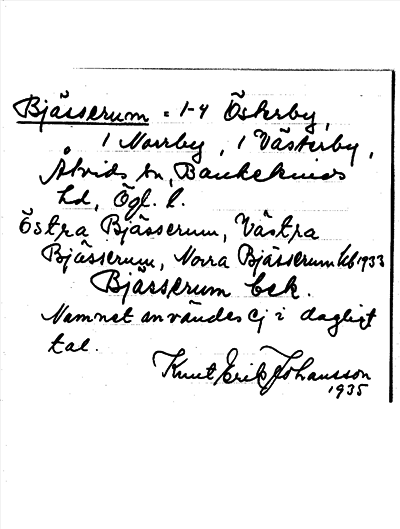 Bjässerum = 1-4 Österby,
1 Norrby, 1 Västerby,
Åtvids sn, Bankekinds
hd, Ögl. l.
Östra Bjässerum, Västra
Bjässerum, Norra Bjässerum Jb 1933
Bjässerum bek.
Namnet användes ej i dagligt
tal.
Knut Erik Johansson
1935